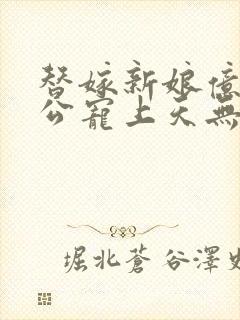 替嫁新娘億
公寵上天無
堀北蒼谷澤